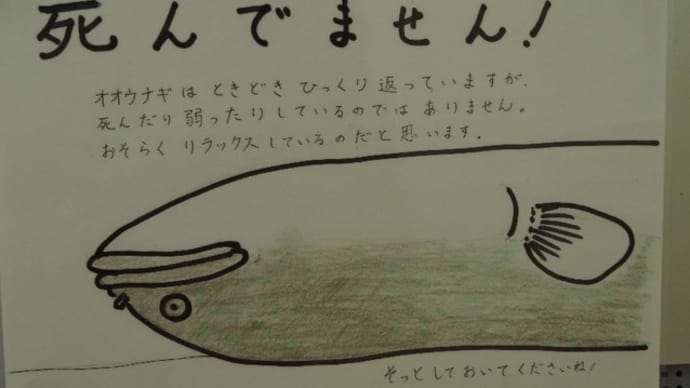 死んでません!
オオウナギは ときどき ひっくり返っていますが、
死んだり弱ったりしているのでは ありません。
おそらく リラックスしているのだと思います.
そっとしておいてくださいね!